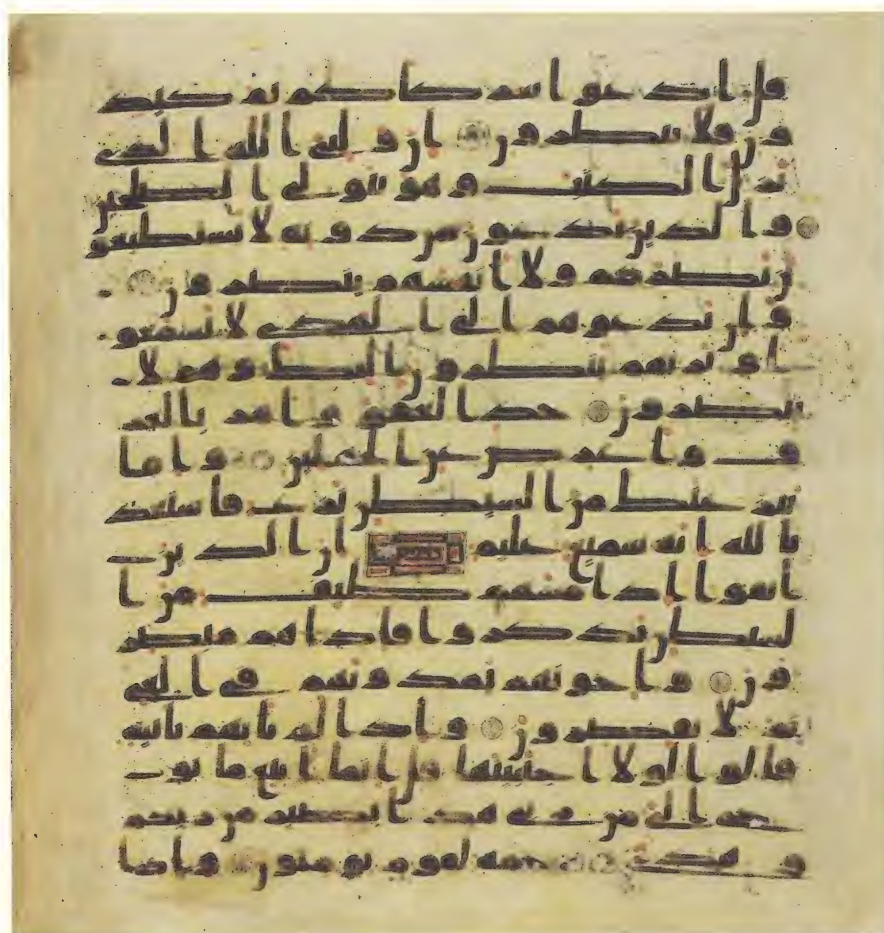 قل ادعوا شركاكم ثم كيد
ون فلا تنظرون ان وليي الله الذي
نزل الكتب وهو يتولى الصلحين
والذين تدعون من دونه لا يستطيعو
ن نصركم ولا انفسهم ينصرون
وان تدعوهم الى الهدى لا يسمعو
ا وتريهم ينظرون اليك وهم لا
يبصرون خذ العفو وامر بالعر
ف واعرض عن الجهلين واما
ينزغنك من الشيطن نزغ فاستعذ
بالله انه سميع عليم ان الذين
اتقوا اذا مسهم طيف من ا
لشيطن تذكروا فاذا هم مبصر
ون واخونهم يمدونهم في الغي
ثم لا يقصرون واذا لم تاتهم باية
قالوا لولا اجتبيتها قل انما اتبع ما يو
حى الي من ربي هذا بصير من ربكم
وهدى ورحمة لقوم يومنون واذا